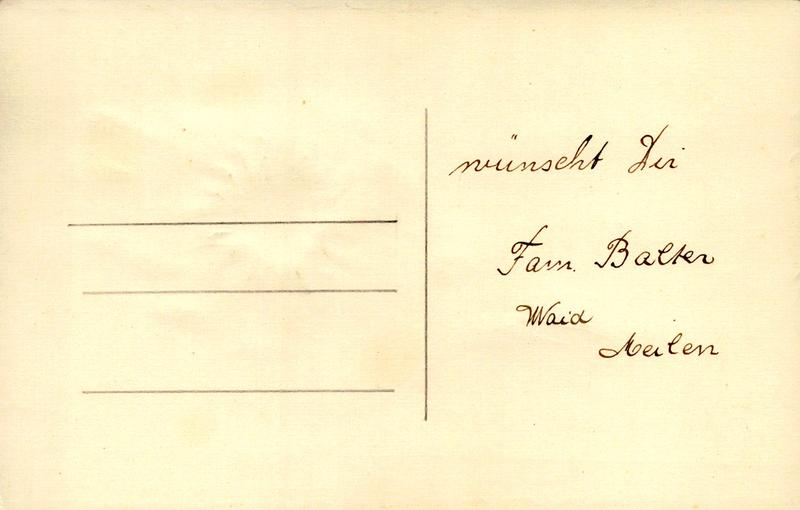 wünscht Dir
Fam. Balter
Waid
Meilen